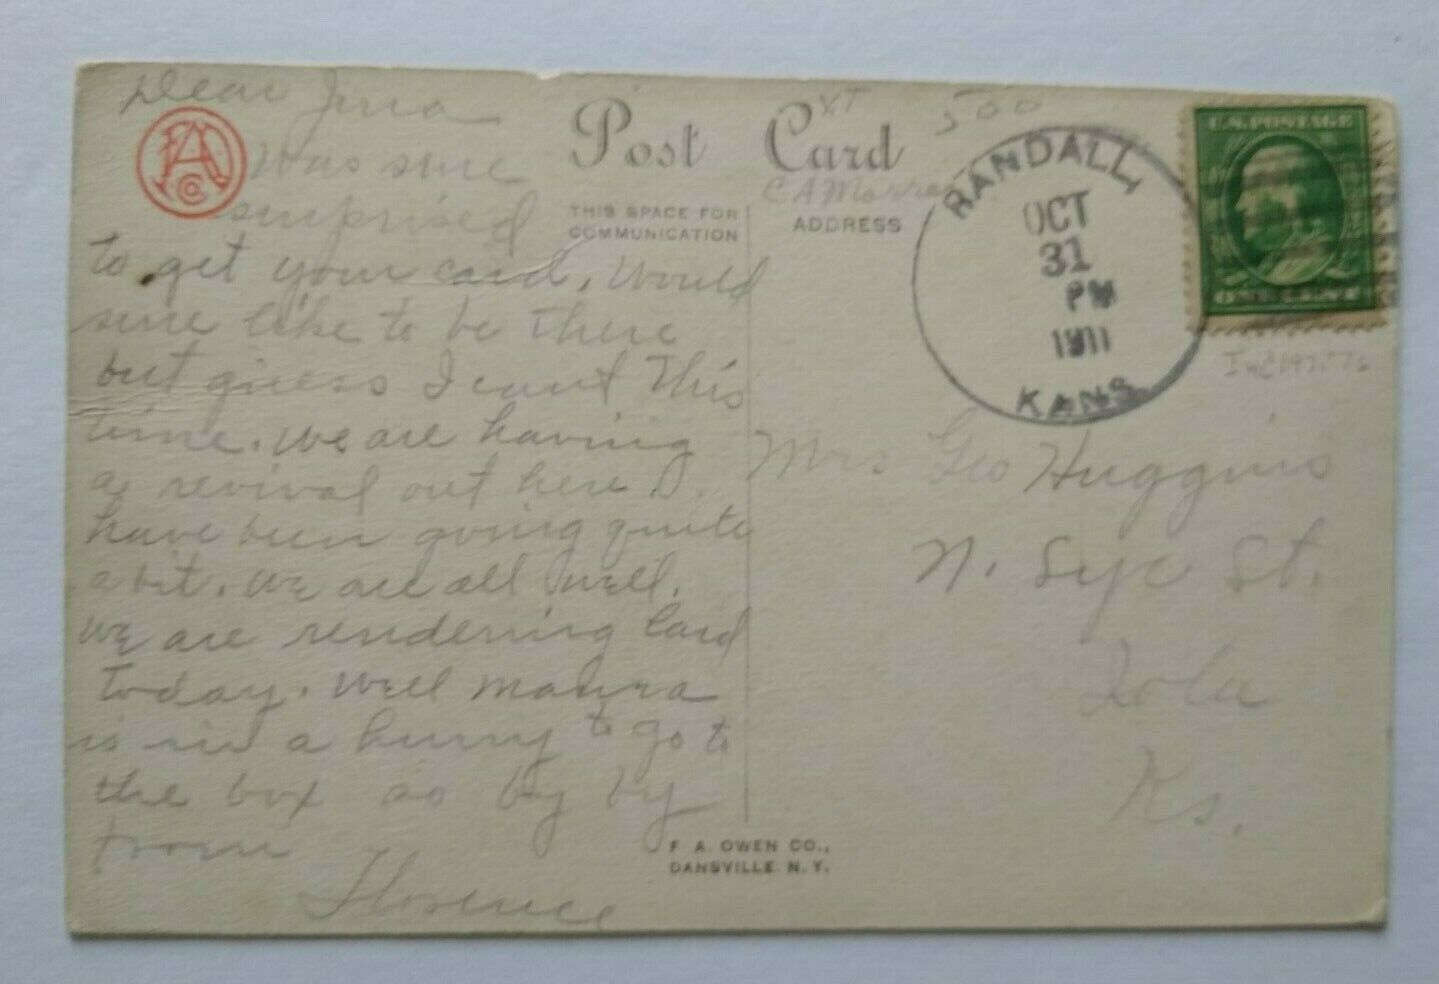 Dear
Was sure
surprised
to get your card, Would
sure like to be there
but guess I cant this
time. We are having
a revival out here I
have been going quite
a bit. We are all well.
We are rendering lard
today. Well
is in a hurry to go to
the box so by by
from
Florence
FAO Co
Post Card
500
THIS SPACE FOR
COMMUNICATION
ADDRESS
RANDALL,
OCT
31
PM
1911
KANS.
U.S. POSTAGE
ONE CENT
Mrs Geo Huggins
N. Syc St.
Iola
Ks.
F. A. OWEN CO.,
DANSVILLE. N. Y.